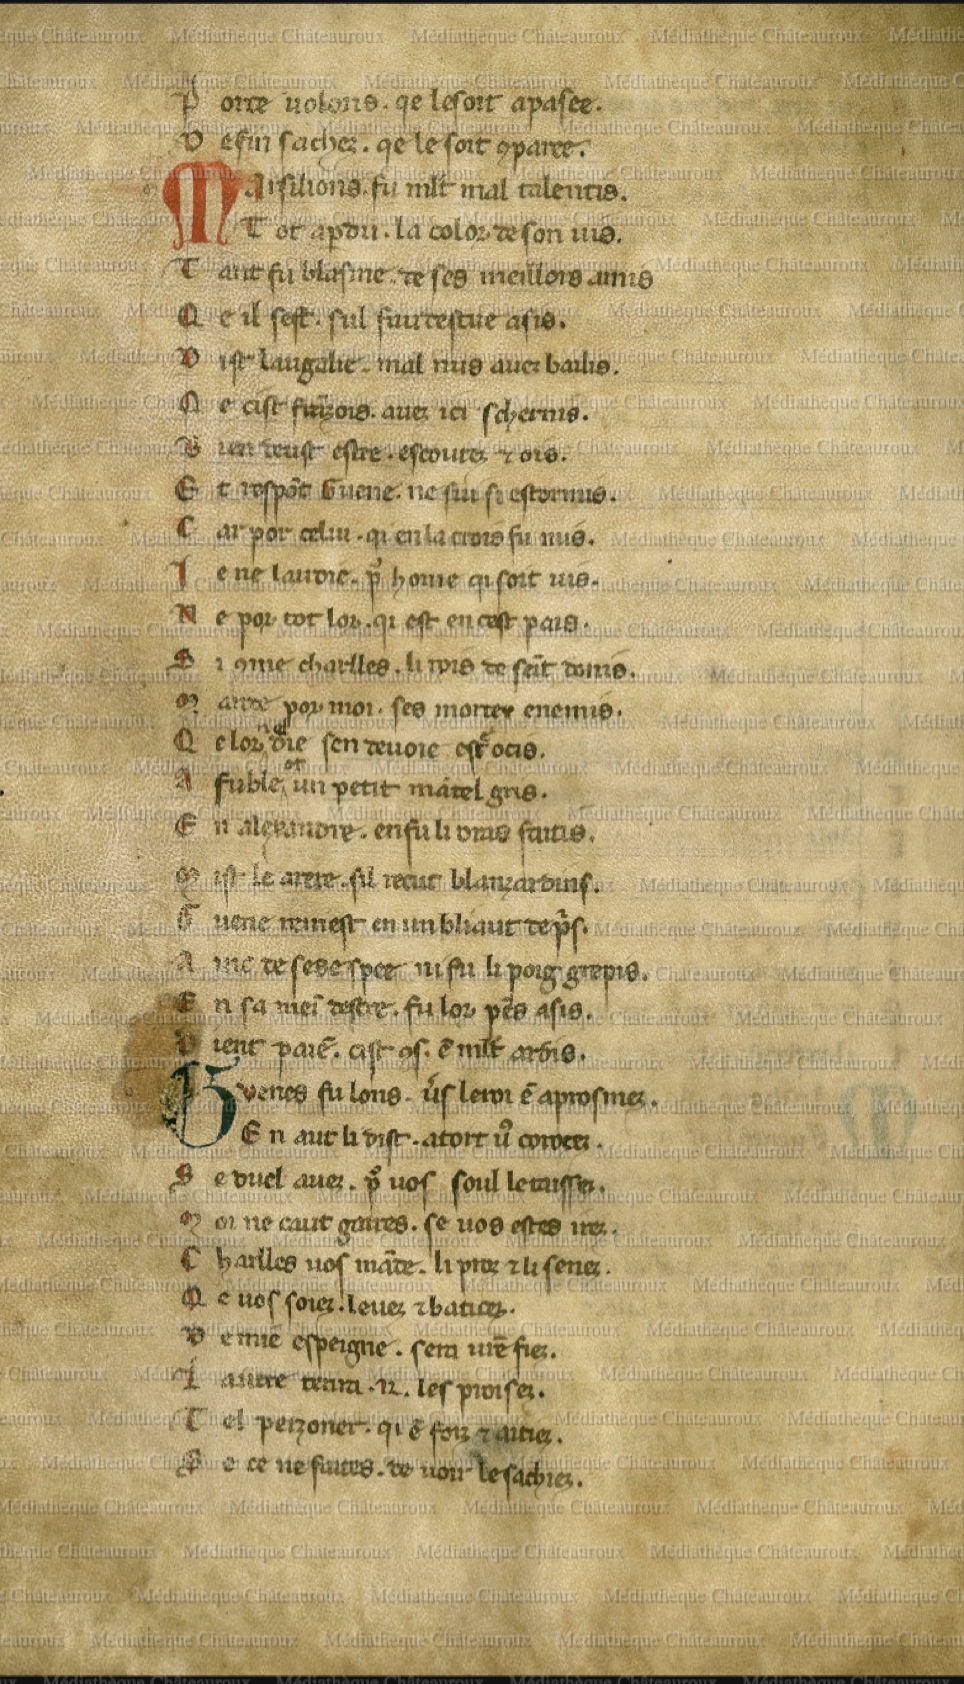 P orte uolons. qe le soit apasee.
D e fin sachez. qe le soit ꝯparee.
M Arsilions. fu ml̃t mal talentis.
T ot a perdu. la color de son uis.
T ant fu blasme. de ses meillors amis
Q e il sest. sul faudestue asis.
D ist laugalie. mal nus auez bailis.
Q e cist franzois. auez ici schernis.
B ien deust estre. escoutez ⁊ ois.
E t respõt Guene. ne sui si estormis.
C ar por celui. qi en la crois fu mis.
I e ne lauroie. ꝑ home qi soit uis.
N e por tot lor. qi est en cest pais.
S i ꝯme charlles. li rois de sent donis.
M ande por moi. ses morter enemis.
Q e lor die sen deuoie estre ocis.
A fuble ot un petit mãtel gris.
E n alexandre. en fu li dras faitis.
M ist le arere. sil recut blanzardins.
G uene remest en un bliaut de pers.
A inc de ses espee ni fu li poig grepis.
E n sa mein destre. fu lor pens asis.
D ient paiẽ. cist ꝯs. ẽ ml̃t ardis.
G venes fu lons. u̾s le roi ẽ aprosmez.
E n aut li dist. a tort uos coroces.
S e duel auez. ꝑ uos soul le laissez.
M oi ne caut gaires. se uos estes irez.
C harlles uos mãde. li proz ⁊ li senez.
Q e uos soiez. leuez ⁊ batiez.
D emie espeigne. sera urẽ fiez.
L autre tenra. R. les proisez.
T el perzoner. qi ẽ forz ⁊ aitiez.
S e ce ne faites. de uoir le sachiez.
Médiathèque Châteauroux